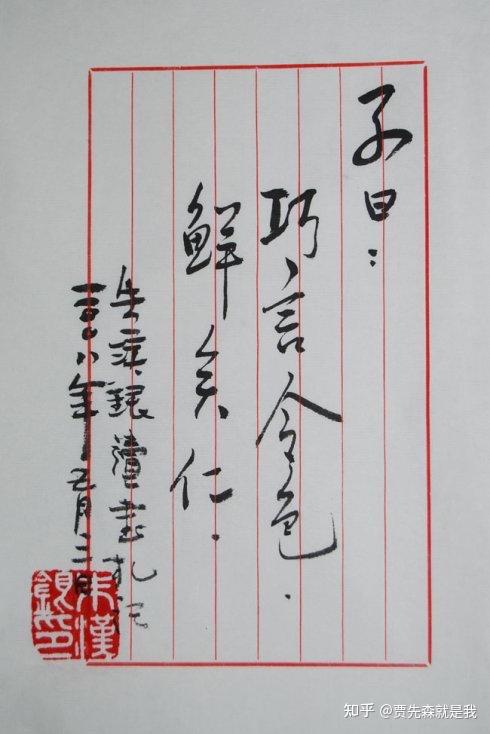 子曰：
巧言令色.
鲜矣仁.
朱汉银读书札记
二〇〇八年五月二日
朱汉银印
知乎 @贾先森就是我